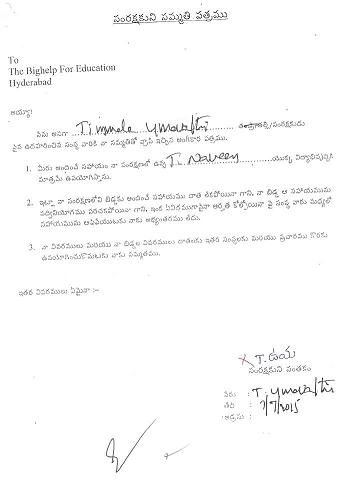 సంరక్షకుని సమ్మతి పత్రము
To
The Bighelp For Education
Hyderabad
అయ్యా!
నేను అనగా Timmala తండ్రి/తల్లి/సంరక్షకుడు
పైన ఉదహరించిన సంస్థ వారికి నా సమ్మతితో వ్రాసి ఇచ్చిన అంగీకార పత్రము.
1. మీరు అందించే సహాయం నా సంరక్షణలో ఉన్న T. Naveen యొక్క విద్యాభివృద్ధికి
మాత్రమే ఉపయోగిస్తాను.
2. ఇట్లా నా సంరక్షణలోని బిడ్డకు అందించే సహాయము దాత లేకపోయినా గాని, నా బిడ్డ ఆ సహాయమును
సద్వినియోగము పరచకపోయినా గాని, ఇంక ఏవిధముగానైనా అర్హత కోల్పోయినా పై సంస్థ వారు మధ్యలో
సహాయమును ఆపివేయుటకు నాకు అభ్యంతరము లేదు.
3. నా వివరములు మరియు నా బిడ్డల వివరములు దాతలకు ఇతర సంస్థలకు మరియు ప్రచారము కొరకు
ఉపయోగించుకొనుటకు నాకు సమ్మతము.
ఇతర వివరములు ఏమైనా :-
x T. ఉమ
సంరక్షకుని సంతకం
పేరు : T.
తేది : 7/7/2015
అడ్రసు :